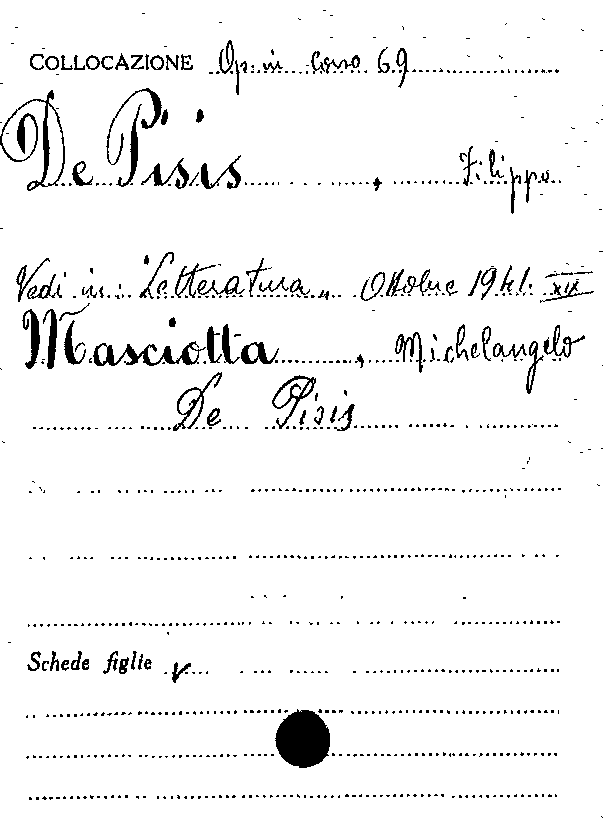 COLLOCAZIONE Op. in Corso 69
De Pisis, Filippo
Vedi in: "Letteratura" Ottobre 1941. XIX
Masciotta, Michelangelo
De Pisis
Schede figlie v